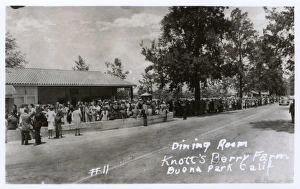 Dining Room
Knott's Berry Farm
Buena Park Calif
#11